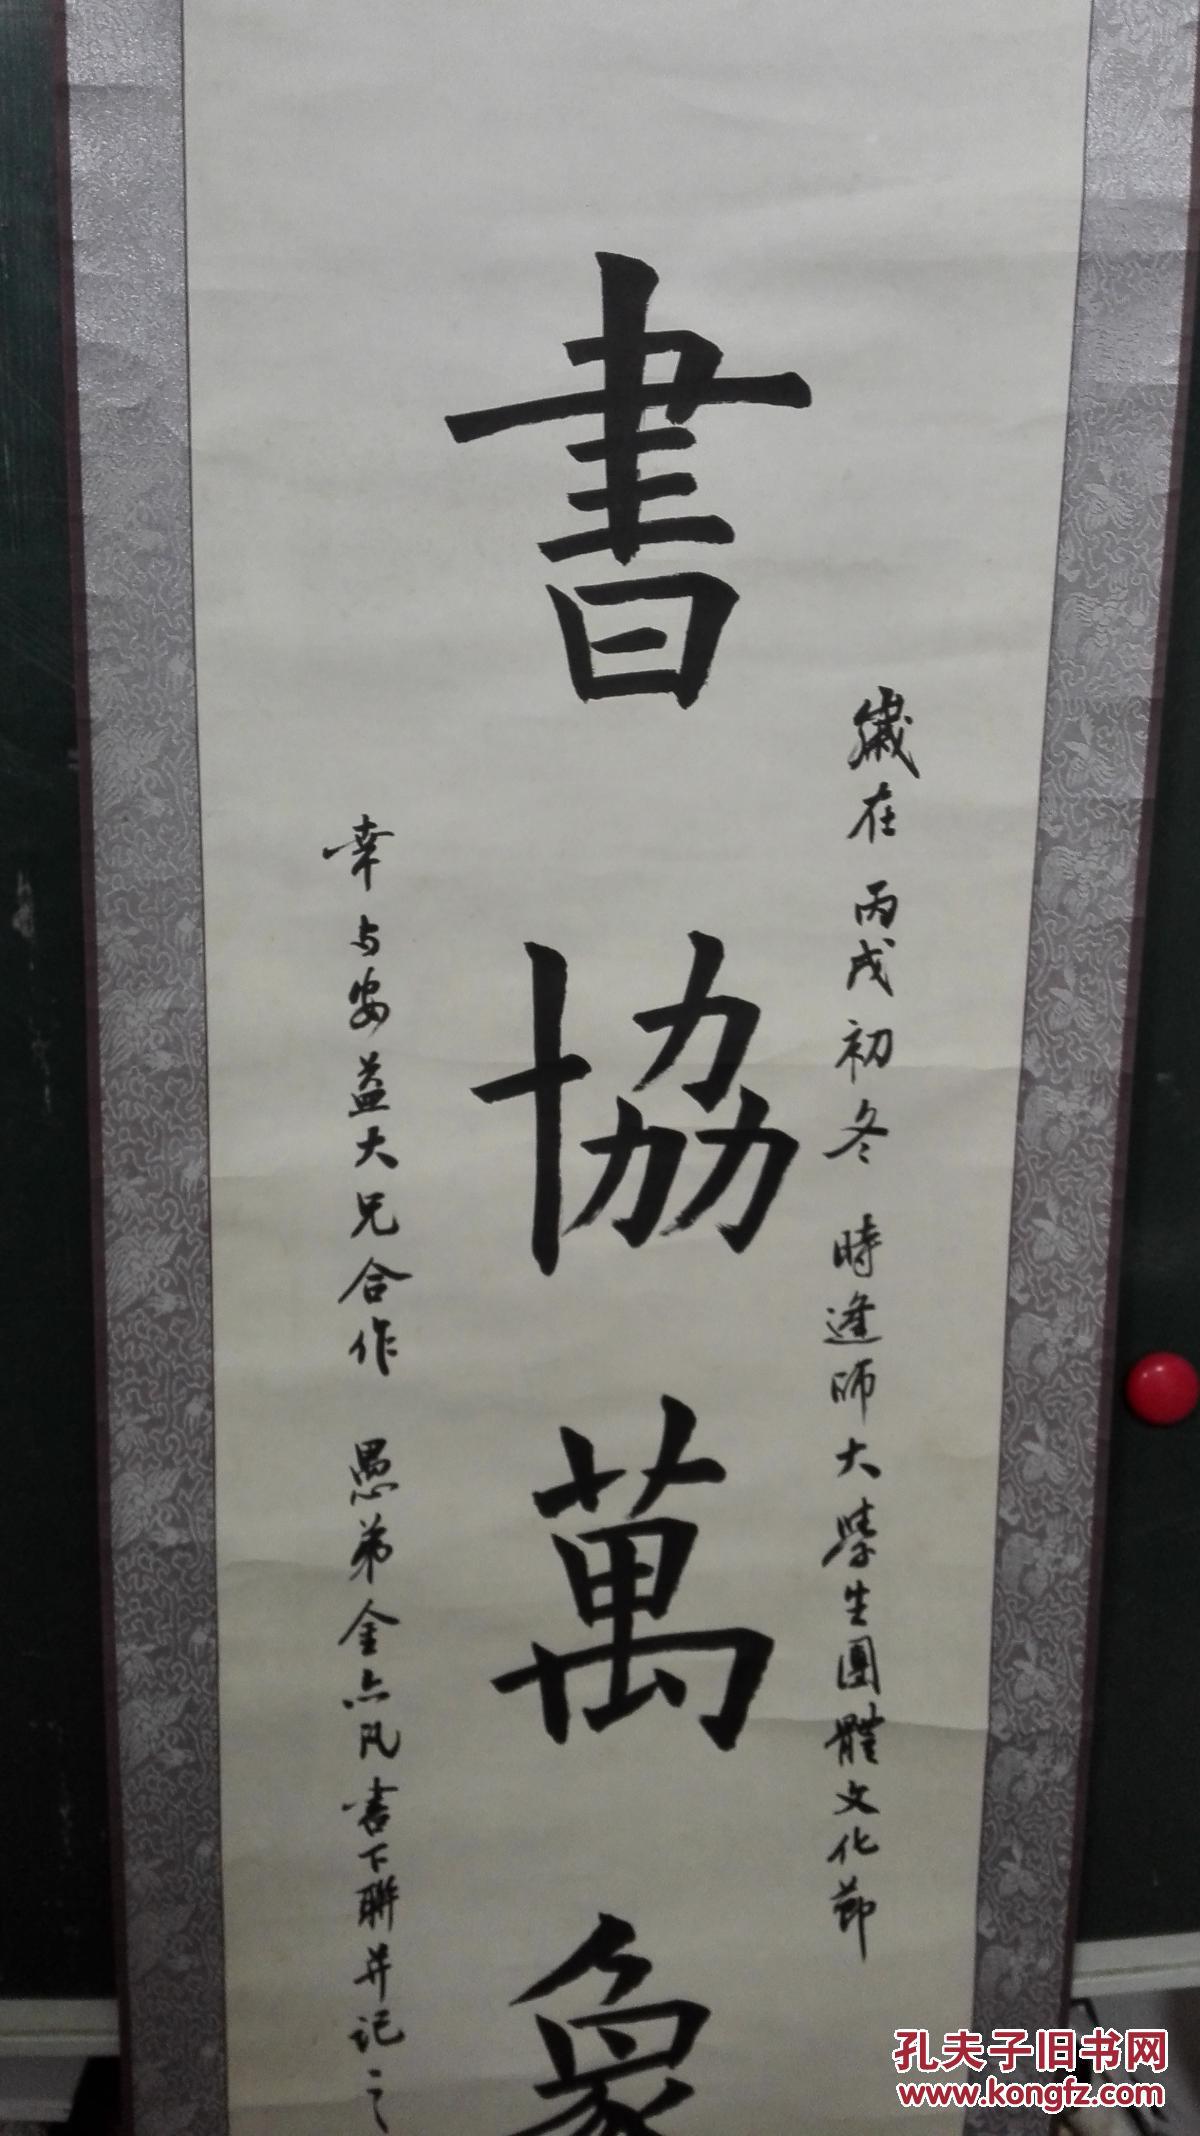 歲在丙戌初冬 時逢師大學生團體文化節
書協萬象
幸与安益大兄合作 愚弟金点凡書下聯并记之
孔夫子旧书网
www.kongfz.com